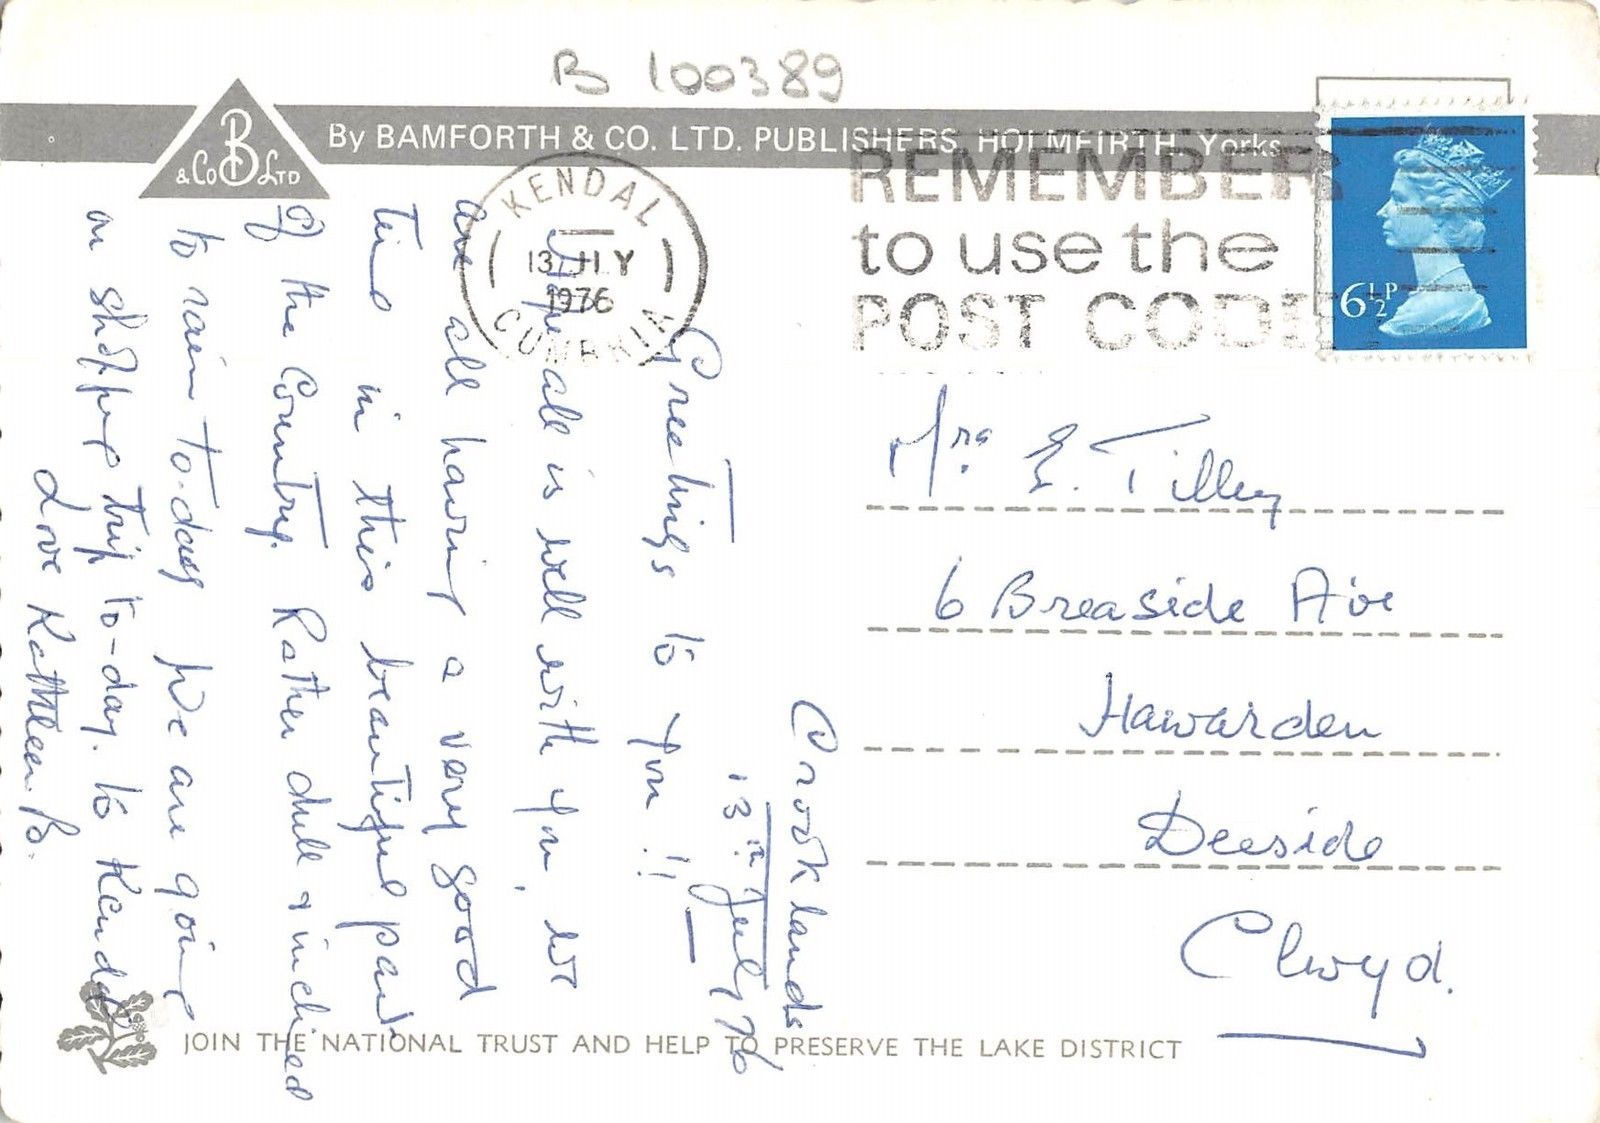 B 100389
B
& Co LTD
By BAMFORTH & CO. LTD. PUBLISHERS, HOLMFIRTH, Yorks
KENDAL
13 JLY
1976
CUMBRIA
REMEMBER
to use the
POST CODE
6½P
Crooklands
13th July 76
Greetings to you !!
all is well with you, we
are all having a very good
time in this beautiful part
of the Country. Rather dull & inclined
to rain to-day We are going
on shopping trip to-day. to Kendal
Love Kathleen. B.
Mrs. E. Tilley
6 Breaside Ave
Hawarden
Deeside
Clwyd.
JOIN THE NATIONAL TRUST AND HELP TO PRESERVE THE LAKE DISTRICT